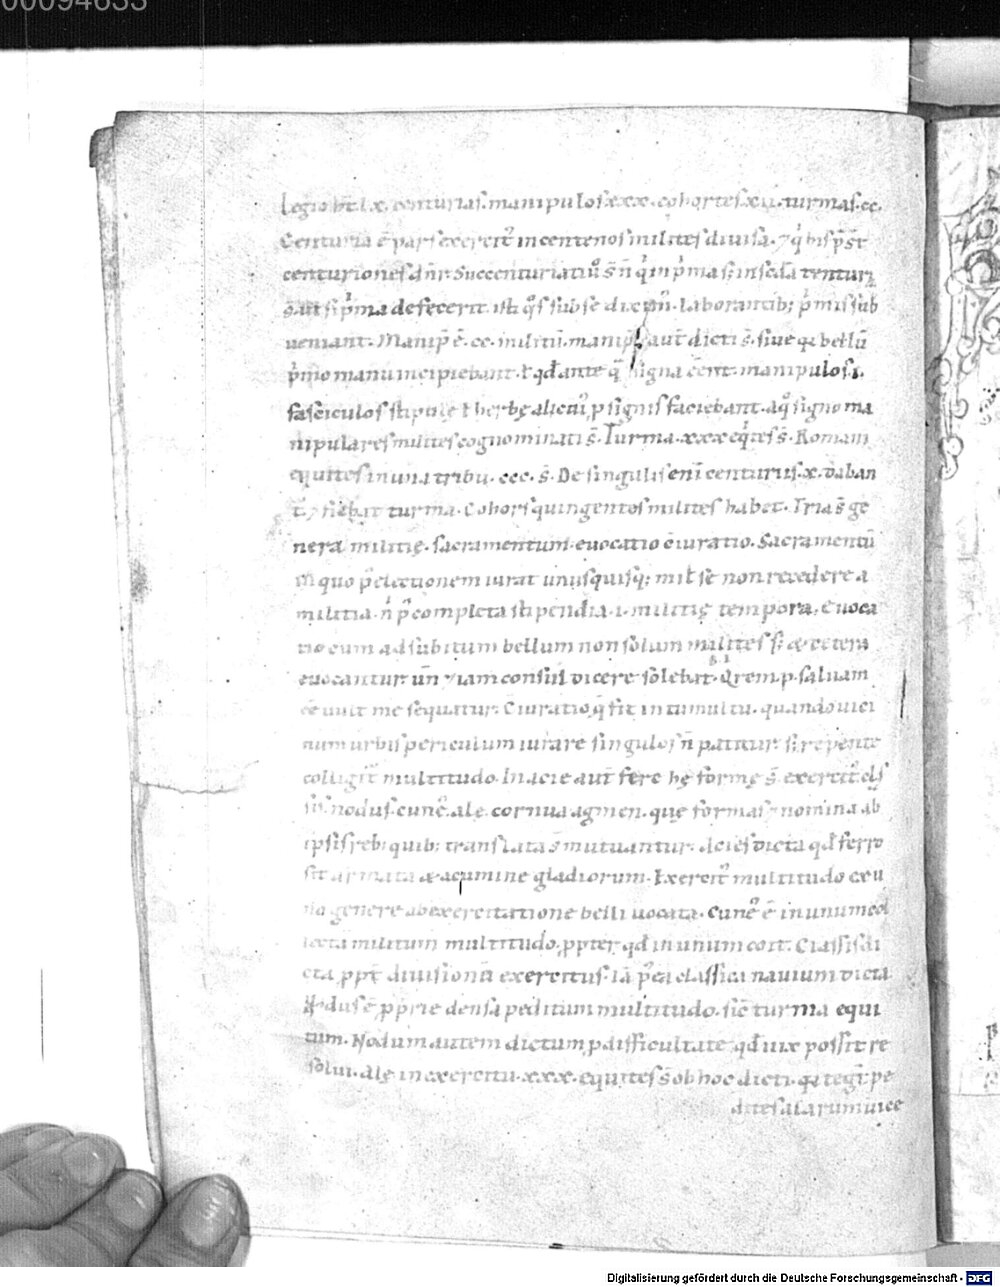 00094633
Legio ht̄. lx. centurias. manipulos. xxx. cohortes. xii. turmas. cc.
Centuria ē pars exercit᷒ in centenos milites diuisa. ⁊ q̇ his p̄st̄
centuriones dnr̄. Succenturiati ů s̄ n̄ q̇ in p̓ma s; in scđa centuri
s̄. ut si p̓ma defecerit. isti q̊s sub se dicim᷒. laborantib; p̓mis sub
ueniant. Manip᷒ ē. cc. militū. manipl̄ aut̄ dicti s̄. siue qa bellū
p̓mo manu incipiebant. ł qđ ante q̄ signa cent. manipulos. i.
fasciculos stipule ł herbę alicui᷒ p signis faciebant. a q̊ signo ma
nipulares milites cognominati s̄. Turma. xxx. eq̇tes s̄. Romani
equites in una tribu. ccc. s̄. De singulis eni centuriis. x. daban
t᷒. ⁊ fiebat turma. Cohors quingentos milites habet. Tria s̄ ge
nera militię. sacramentum. euocatio. ciuratio. Sacramentū
in quo p̓ electionem iurat unusquisq; mil̄ se non recedere a
militia. n̄ p̓ completa stipendia. i. militię tempora. Euoca
tio cum ad subitum bellum non solum milites s; & cetera
euocantur. un̄ ⁊ iam consul dicere solebat. Q̇ rem. p. saluam
ēē uult me sequatur. Ciuratio q̄ fit in tumultu. quando uici
num urbis periculum iurare singulos n̄ patitur. s; repente
colligit᷒ multitudo. In acie aut̄ fere hę formę s̄. exercit᷒. clas
sis. nodus. cune᷒. ale. cornua. agmen. que formas ⁊ nomina ab
ipsis reb; quib; translata s̄ mutuantur. Acies dicta qđ ferro
sit armata & acumine gladiorum. Exercit᷒ multitudo ex u
no genere ab exercitatione belli uocata. Cune᷒ ē in unum col
lecta militum multitudo. ppter qđ in unum coit. Classis di
cta ppt̄ diuisionē exercitus. iā p᷒ ea classica nauium dicta
Nodus ē pprie densa peditum multitudo. sic̄ turma equi
tum. Nodum autem dictum p difficultate. qđ uix possit re
solui. Alę in exercitu. xxx. equites s̄ ob hoc dicti. qa tegt᷒ pe
dites alarum uice
Digitalisierung gefördert durch die Deutsche Forschungsgemeinschaft - DFG